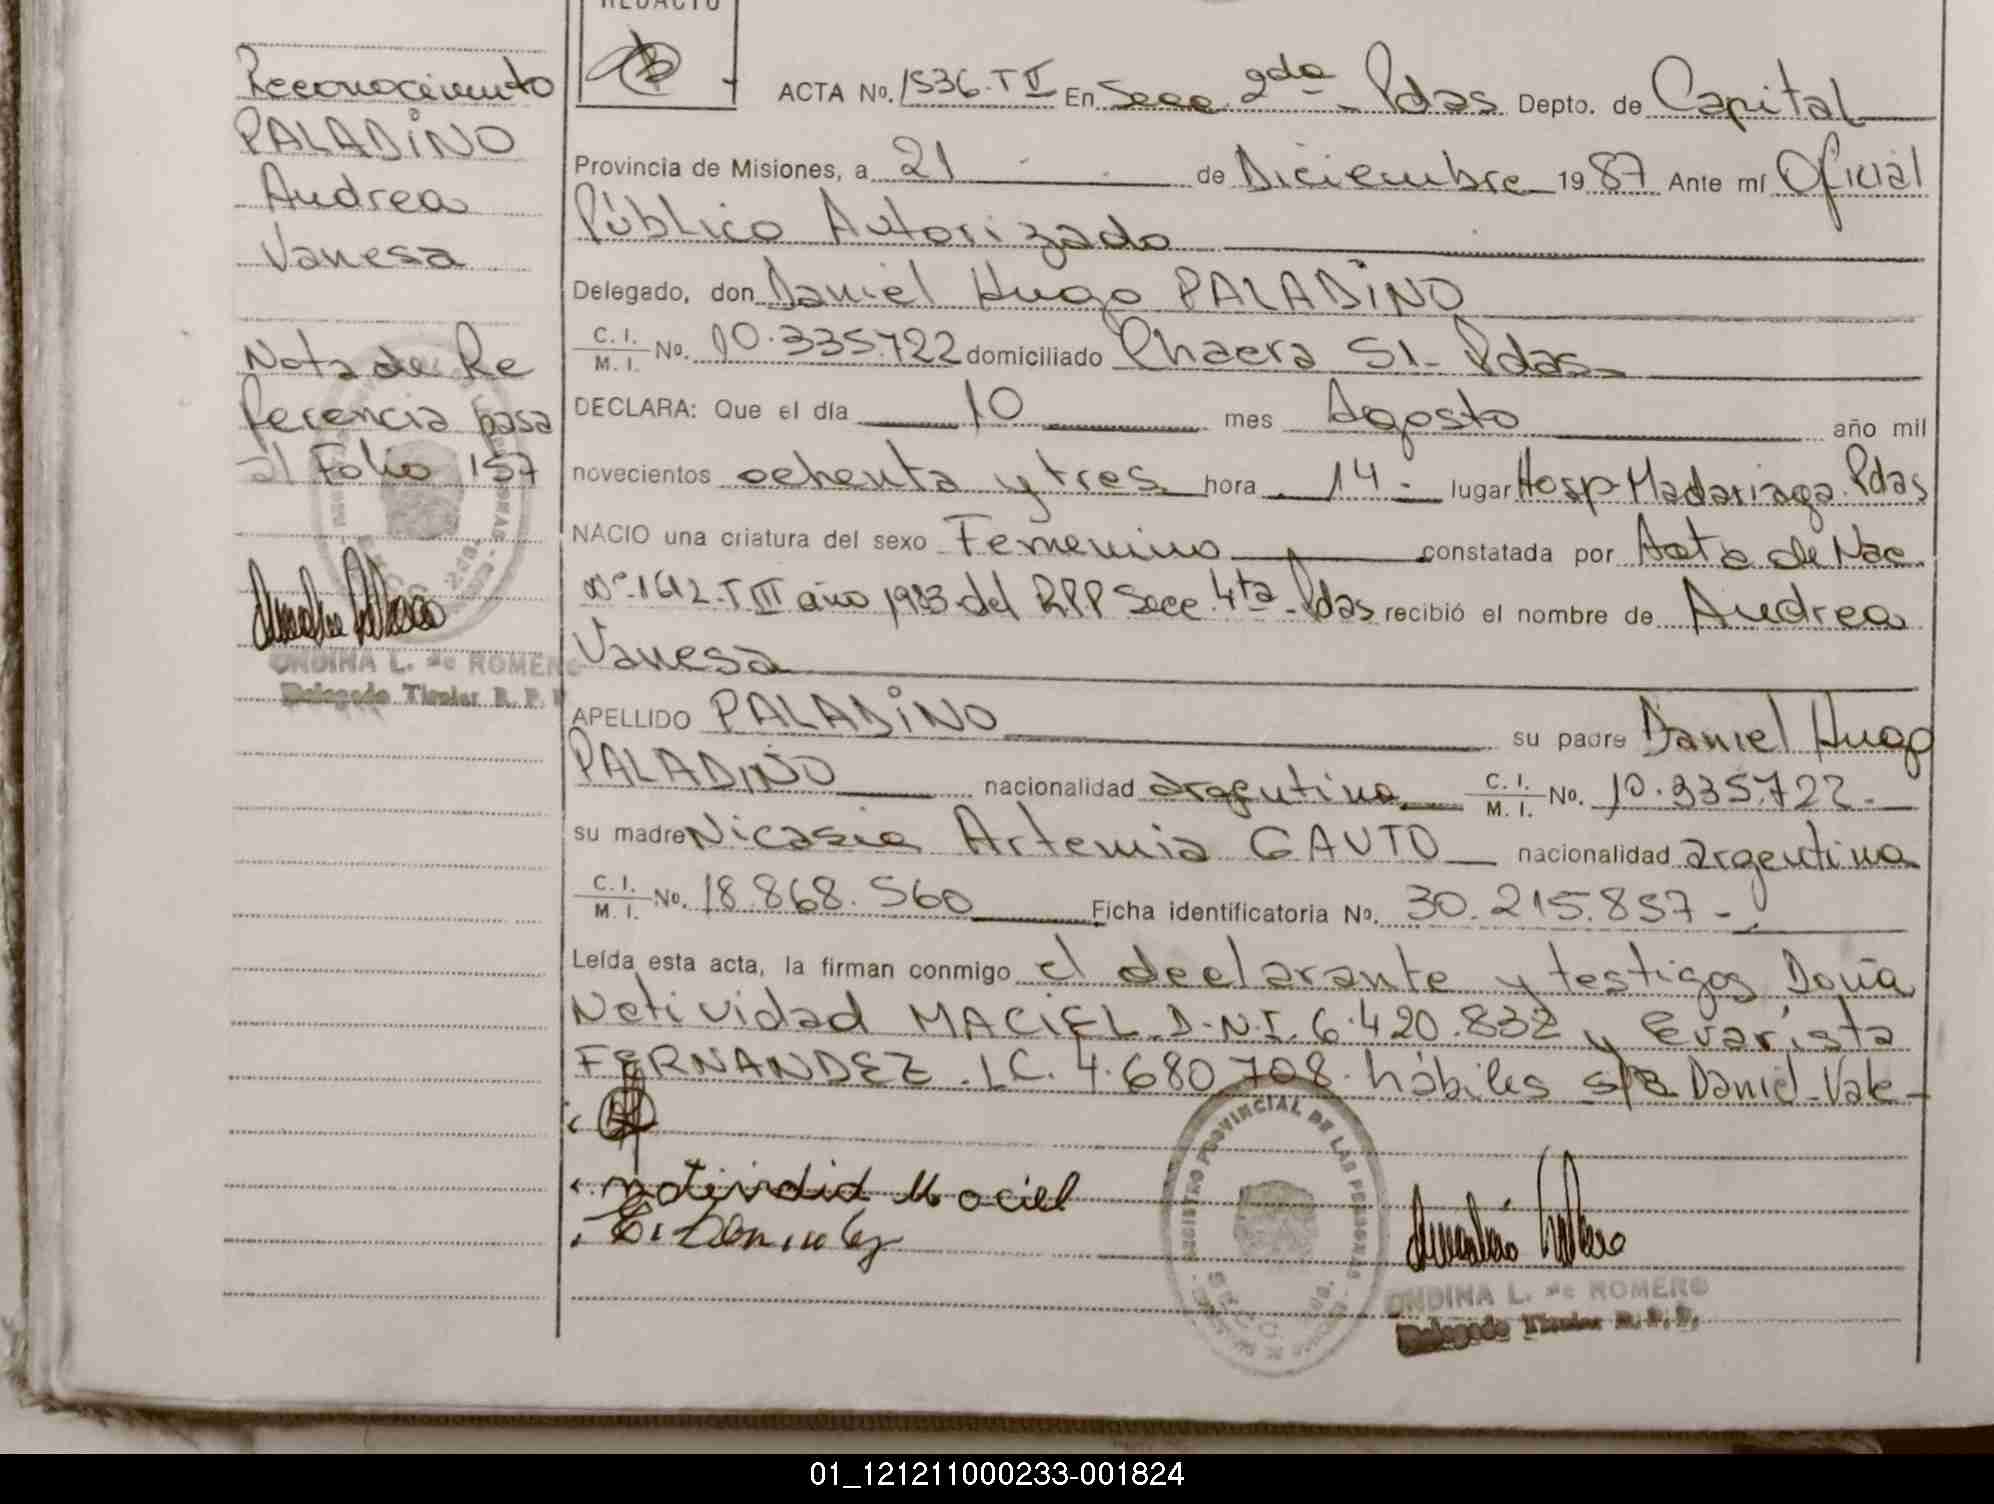 REDACTO
Reconocimiento
PALADINO
Andrea
Vanesa
Nota de Re
ferencia pasa
al Folio 157
ONDINA L. de ROMERO
Delegado Titular R. P. P.
ACTA No. 1536. T II En Secc. 2da Pdas Depto. de Capital
Provincia de Misiones, a 21 de Diciembre 1987 Ante mí Oficial
Público Autorizado
Delegado, don Daniel Hugo PALADINO
C. I. M. I. No. 10.335.722 domiciliado Chacra 51- Pdas
DECLARA: Que el día 10 mes Agosto año mil
novecientos ochenta y tres hora 14- lugar Hosp Madariaga Pdas
NACIO una criatura del sexo Femenino constatada por Acta de Nac
Nº 1612-T III año 1983 del RPP Secc. 4ta Pdas recibió el nombre de Andrea
Vanesa
APELLIDO PALADINO su padre Daniel Hugo
PALADINO nacionalidad argentina C. I. M. I. No. 10.335.722-
su madre Nicasia Artemia GAUTO nacionalidad argentina
C. I. M. I. No. 18.868.560 Ficha identificatoria No. 30.215.857-
Leída esta acta, la firman conmigo el declarante y testigos Doña
Natividad MACIEL D.N.I. 6.420.832 y Evarista
FERNANDEZ LC. 4.680.708 hábiles s/r Daniel-Vale-
natividid Maciel
REGISTRO PROVINCIAL DE LAS PERSONAS
SECC. 2da.
ONDINA L. de ROMERO
Delegado Titular R. P. P.
01_121211000233-001824